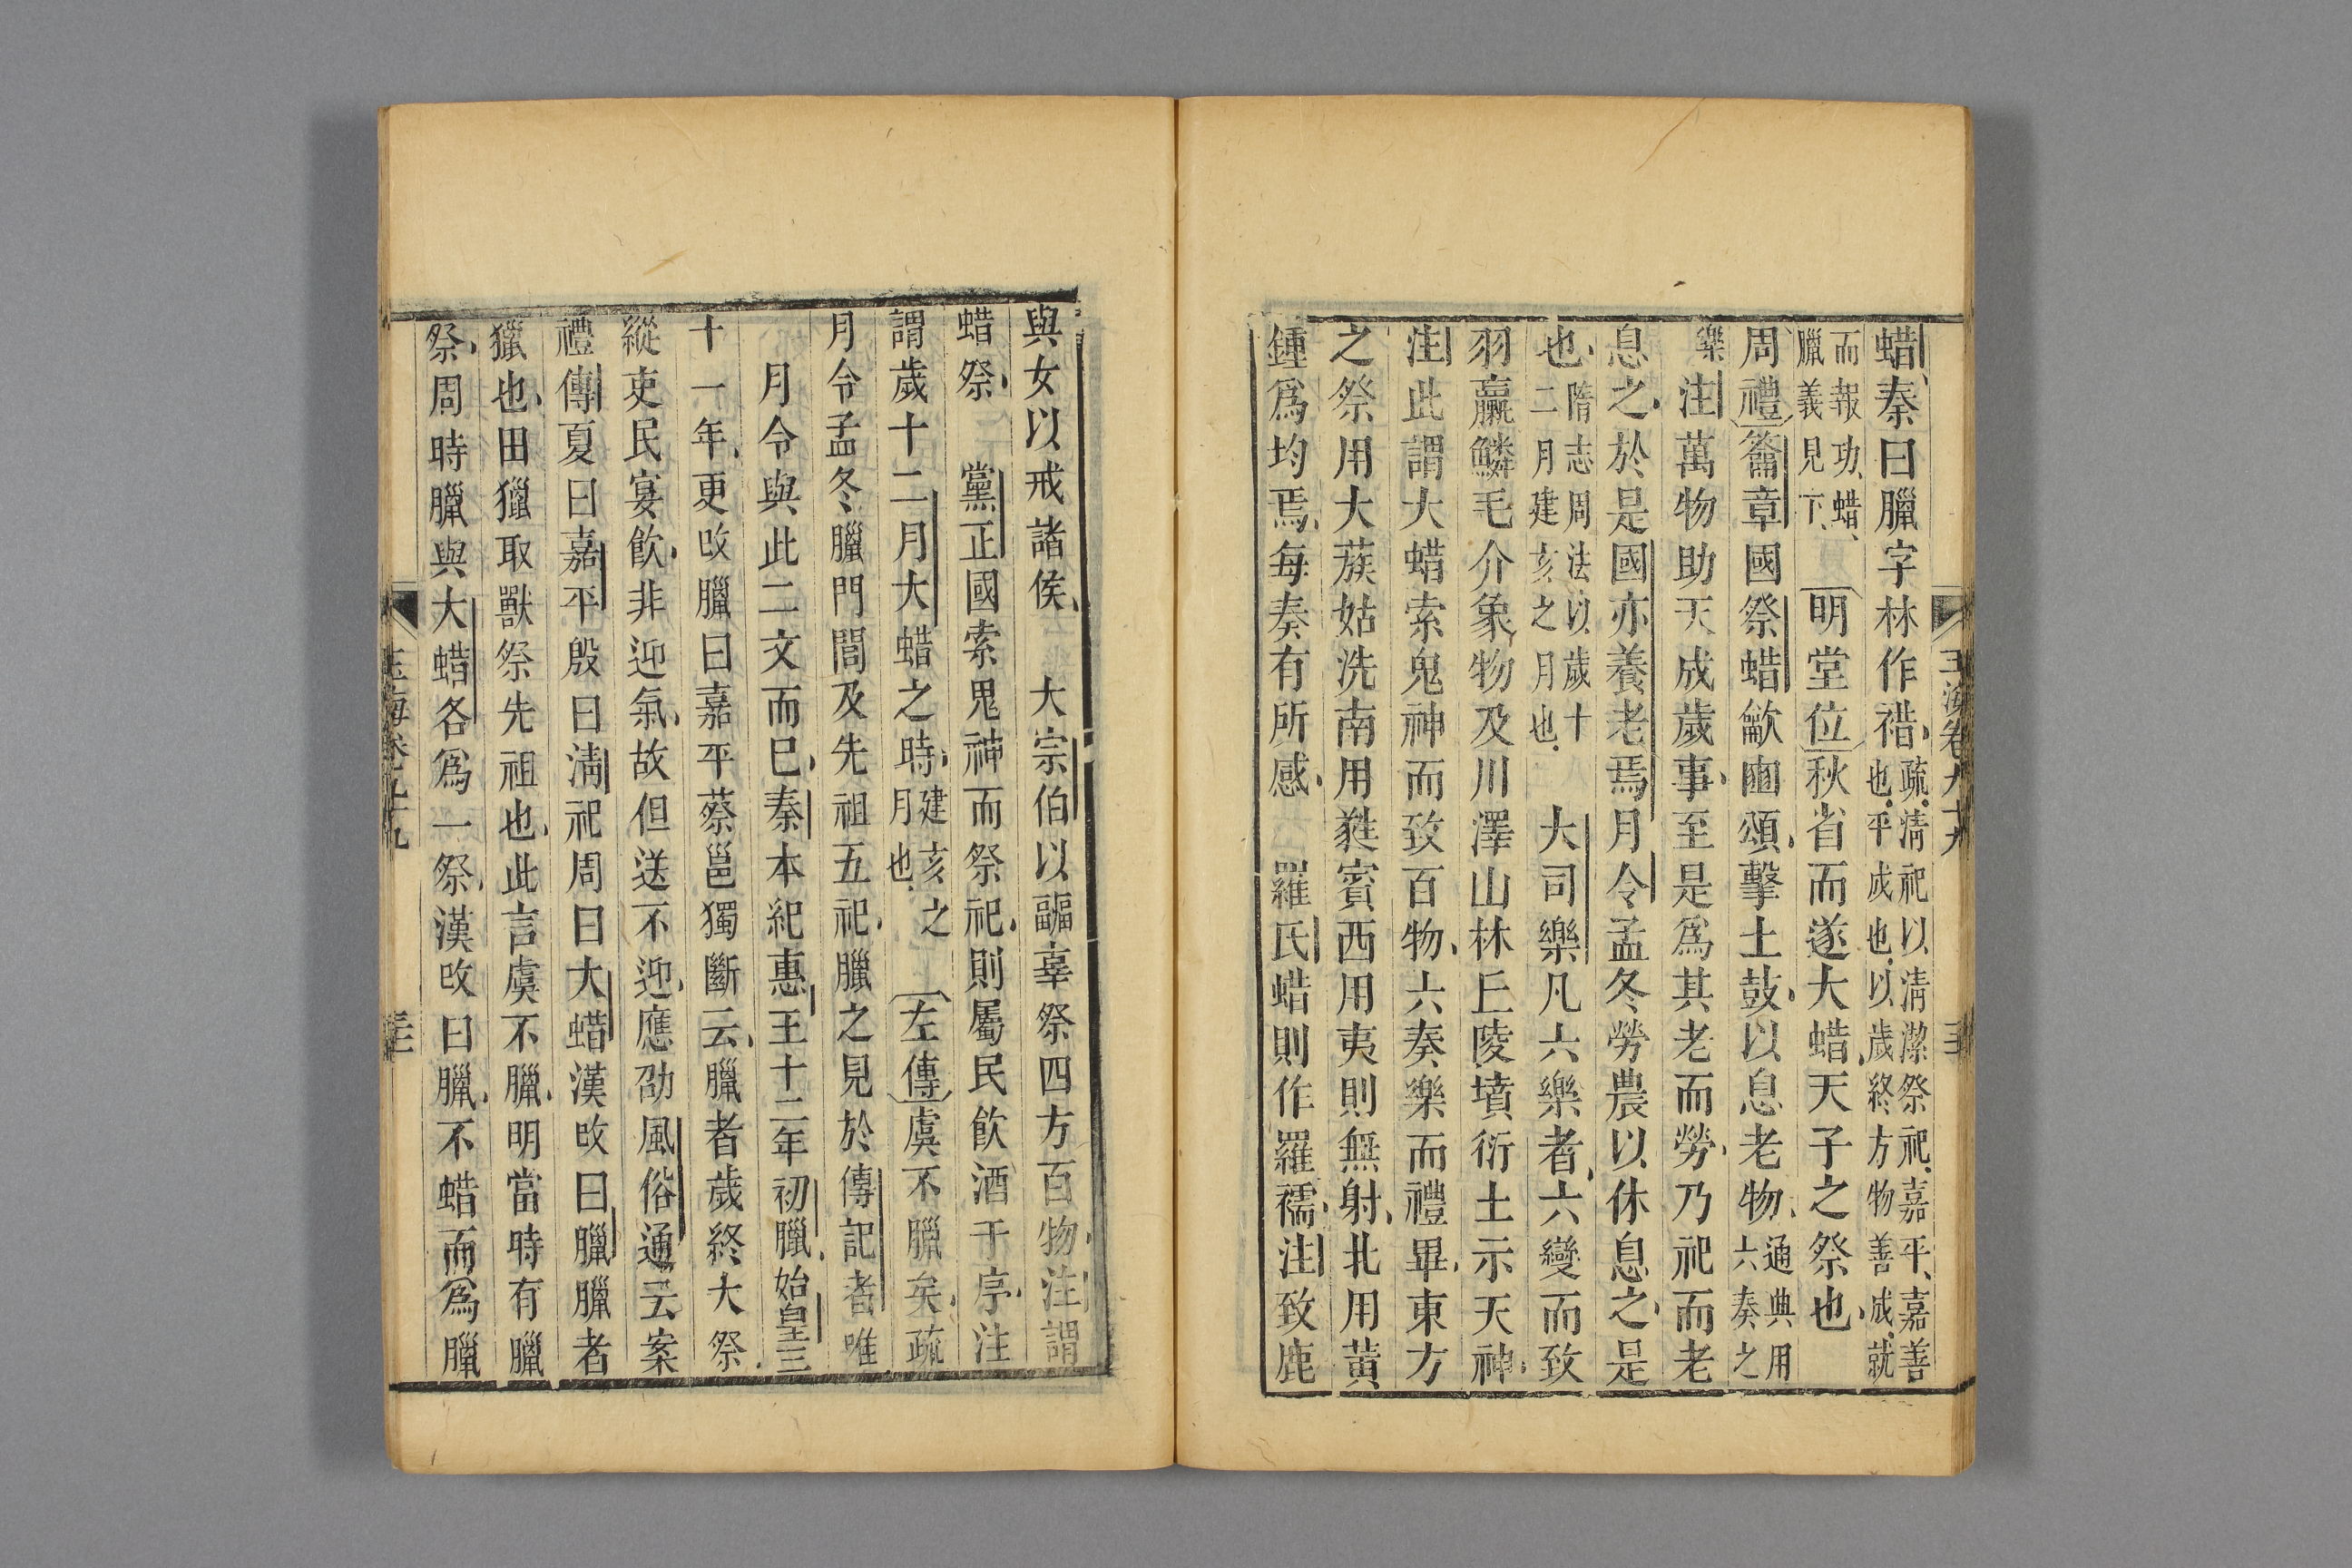 蜡秦曰臘字林作䄍疏清祀以清潔祭祀嘉平嘉善也平成也以歲終方物善成就
而報功蜡臘義見下明堂位秋省而遂大蜡天子之祭也
周禮籥章國祭蜡龡豳頌擊土鼓以息老物通典用六奏之
樂注萬物助天成歲事至是爲其老而勞乃祀而老
息之於是國亦養老焉月令孟冬勞農以休息之是
也隋志周法以歲十二月建亥之月也大司樂凡六樂者六變而致
羽臝鱗毛介象物及川澤山林丘陵墳衍土示天神
注此謂大蜡索鬼神而致百物六奏樂而禮畢東方
之祭用大蔟姑洗南用蕤賓西用夷則無射北用黃
鍾爲均焉每奏有所感羅氏蜡則作羅襦注致鹿
玉海卷九十九
與女以戒諸侯大宗伯以疈辜祭四方百物注謂
蜡祭黨正國索鬼神而祭祀則屬民飲酒于序注
謂歲十二月大蜡之時建亥之月也左傳虞不臘矣疏
月令孟冬臘門閭及先祖五祀臘之見於傳記者唯
月令與此二文而已秦本紀惠王十二年初臘始皇三
十一年更改臘曰嘉平蔡邕獨斷云臘者歲終大祭
縱吏民宴飲非迎氣故但送不迎應劭風俗通云案
禮傳夏曰嘉平殷曰清祀周曰大蜡漢改曰臘臘者
獵也田獵取獸祭先祖也此言虞不臘明當時有臘
祭周時臘與大蜡各爲一祭漢改曰臘不蜡而爲臘
玉海卷九十九